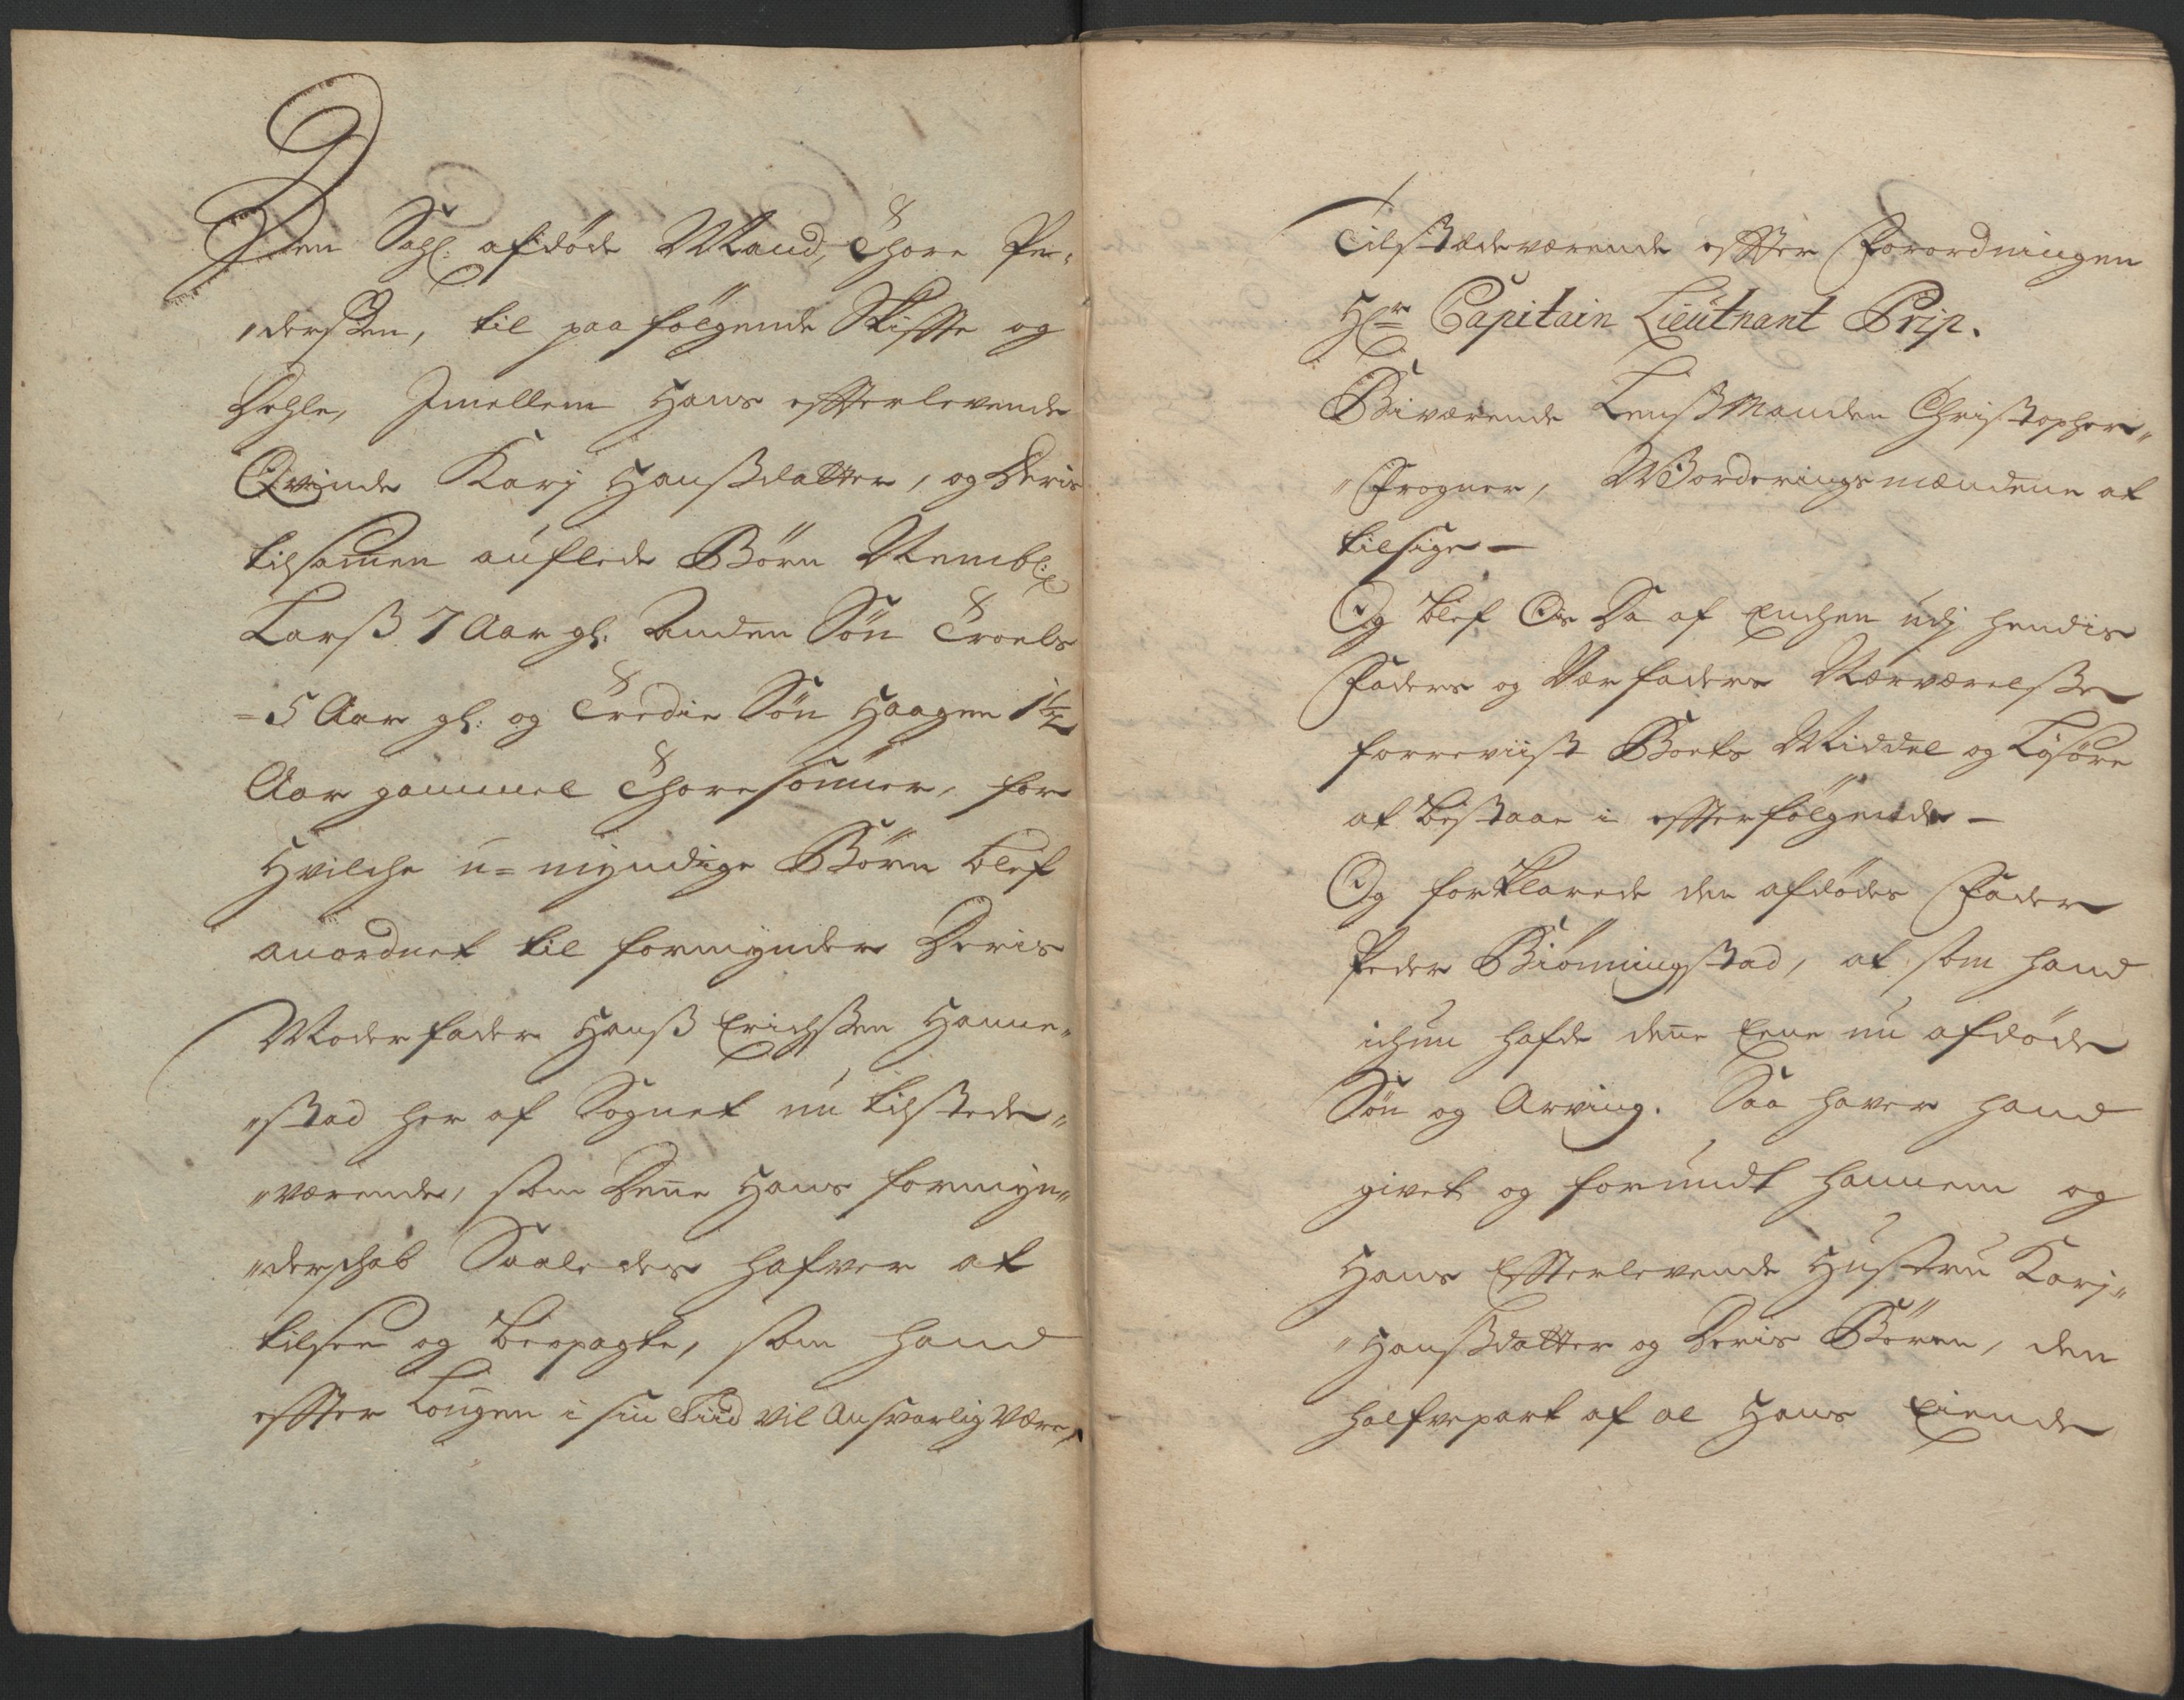 Den Sahl: afdöde Mand, Thore Pe-
"derßen, til paafölgende Skiffte og
Dehle, Imellem Hans effterlevende
Qvinde Karj Hanßdatter, og deris
tilsamen auflede Börn Nembl:
Larß 7 Aar gl: Anden Sön Troels
= 5 Aar gl: og Tredie Sön Haagen 1½
Aar gammel Thoresönner, for
Hvilche u=myndige Börn blef
anordnet til formynder Deris
Moderfader Hanß Erichßen Hanne"
"stad her af Sognet nu tilstede"
"værende, som Denne Hans formyn"
"derschab Saaledes hafver at
tilsee og beopagte, som hand
effter Lougen i sin Tiid vil Ansvarlig være,
Tilstædeværende effter Forordningen
Hr Capitain Lieutnant Prip.
Biværende Lenßmanden Christopher"
"Frogner, Worderingsmændene at
tilsige —
Og blef Os Da af Enchen udj hendis
Faders og Værfaders Nærværelße
forreviist Boets Middel og Lösöre
at bestaae i effterfölgende —
Og forklarede den afdödes Fader
Peder Biönningstad, at som hand
ichun hafde denne Eene nu afdöde
Sön og Arving. Saa haver hand
givet og forundt hannem og
Hans Effterlevende Hustru Karj"
"Hanßdatter og Deris Börn, den
halfvepart af al Hans Eiende